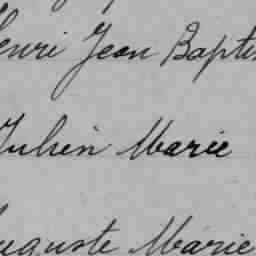 Henri Jean Baptis
Julien Marie
Auguste Marie